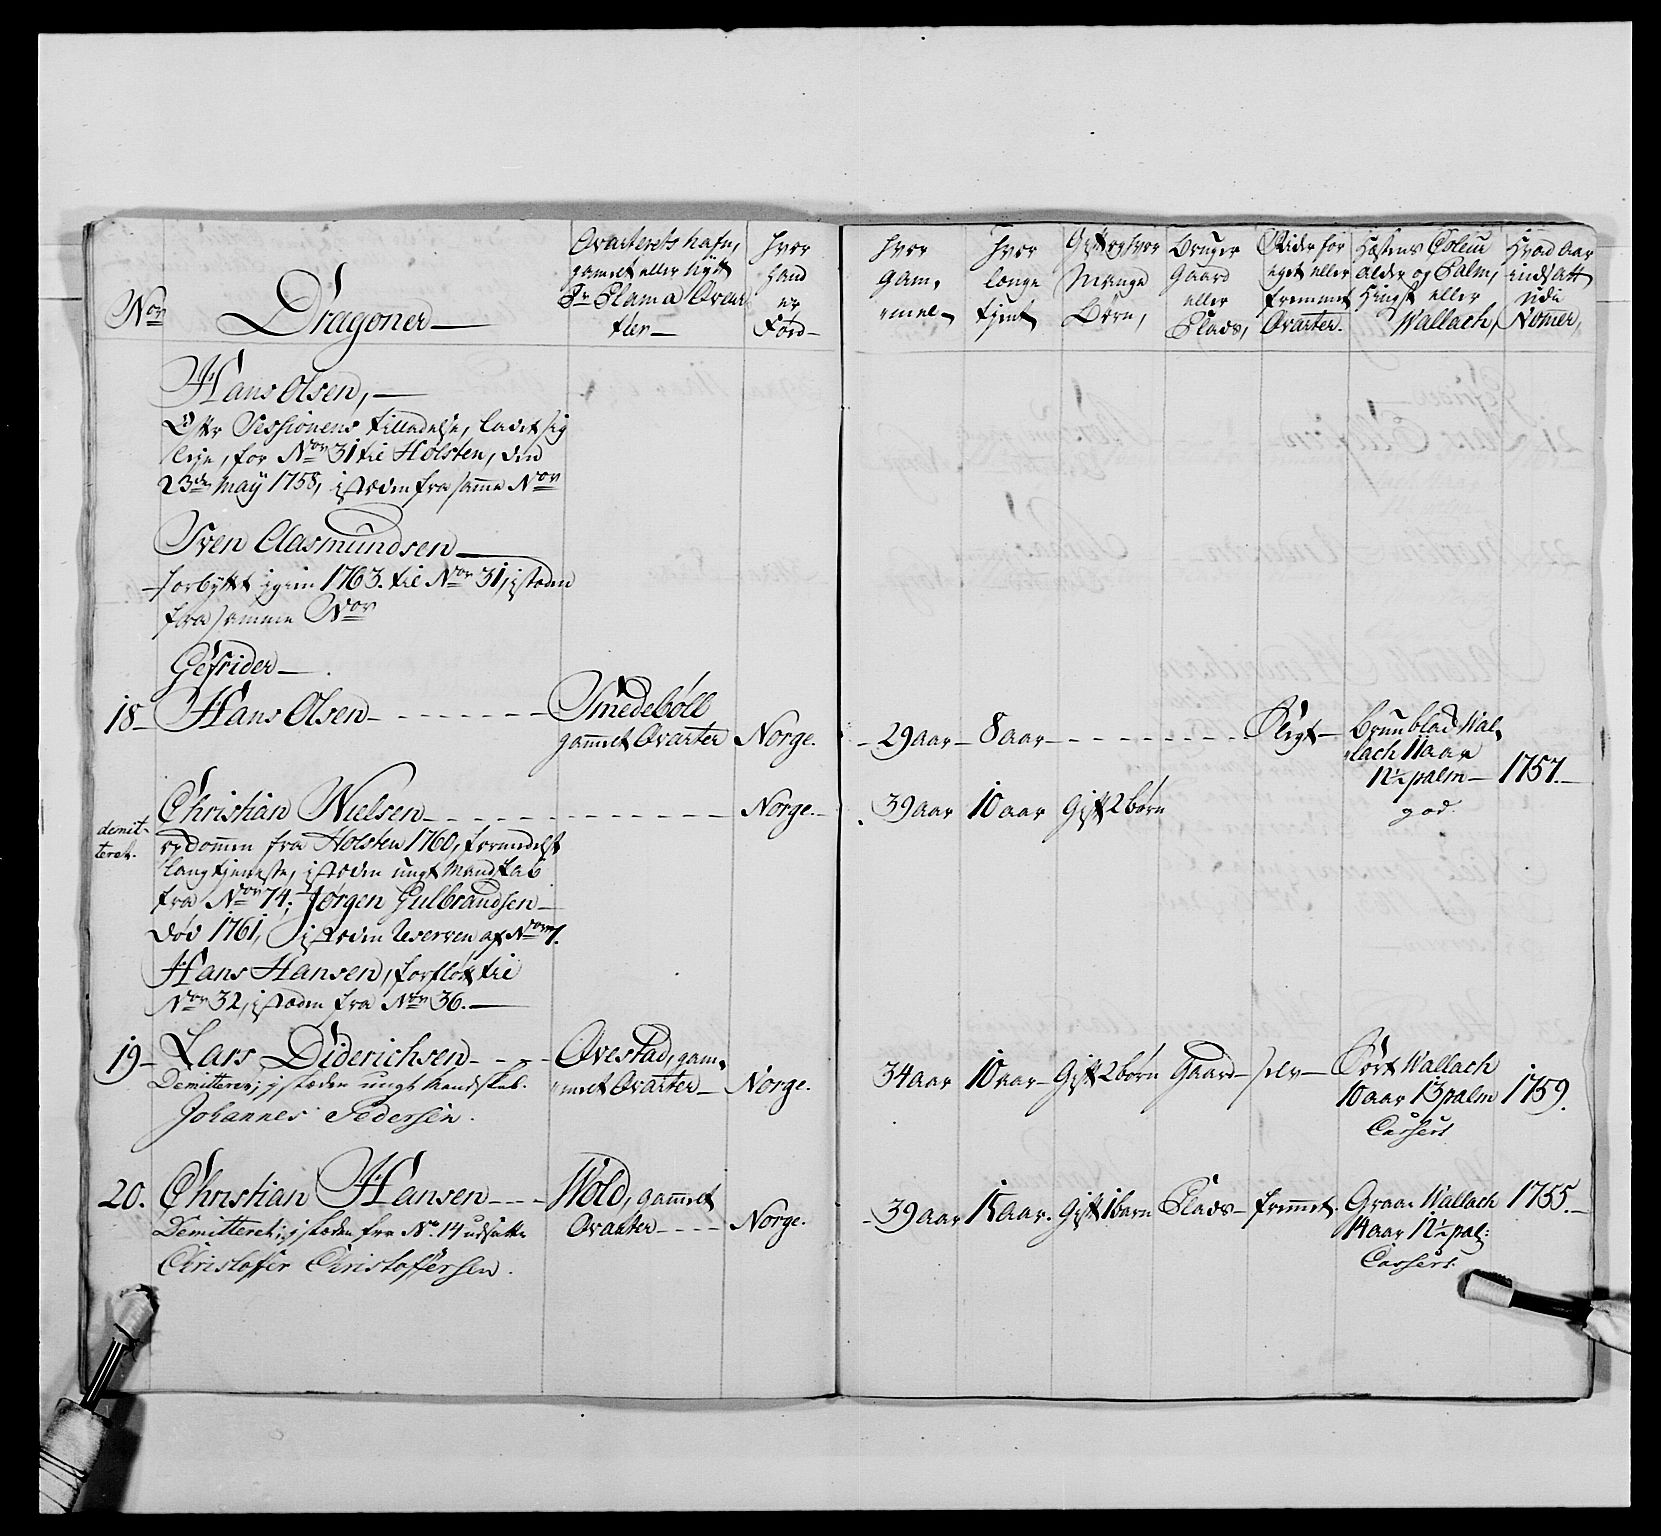 No:
Dragoner
Qvarterets nafn,
gamelt eller nÿtt
Qvar-
ter
hvor
hand
er
Född
hvor
gam,
mel
hvor
lenge
tjent
Gift og hvor
Mange
Börn,
Bruger
Gaard
eller
Plads,
Rider for
eget eller
fremmet
Qvarter.
Hestens Coleur
alder og Palm,
Hingst eller
Wallach,
Hvad Aar
indsatt
udi
Nomer,
Hans Olsen,
Efter Sessionens tilladelse, ladet sig
leje, for No: 31 til Holsten, den
23de Maÿ 1758, i steden fra samme No:
Sven Aasmundsen
forbÿtt igien 1763. til No: 31, i steden
fra samme No:
Gefrider
18 Hans Olsen Smedeböll
gammelt Qvarter Norge. 29 aar 8 aar Brun blad Wal-
lach 11 aar
12½ palm 1757.
god.
Christian Nielsen Norge. 39 aar 10 aar Gift 2 börn
demit-
teret.
kommen fra Holsten 1760, formedelst
lang tjeneste, i steden ungt Mandskab
fra No: 74; Jörgen Gulbrandsen
död 1761, i steden Reserven af No: 7.
Hans Hansen, forflöt til
No: 32, i steden fra No: 36.
19 Lars Diderichsen Ovestad, gam-
melt Qvarter Norge. 34 aar 10 aar Gift 2 börn Gaard selv Sort Wallach
10 aar 13 palm 1759.
Cassert
Demitteret; i steden ungt Mandskab.
Johannes Pedersen.
20. Christian Hansen Wold, gammelt
Qvarter Norge. 39 aar 15 aar. Gift 1 barn Plads fremmet. Graae Wallach 1755.
14 aar 12½ pal:
Cassert.
Demitteret; i steden fra No. 14 udsatte
Christoffer Christoffersen.